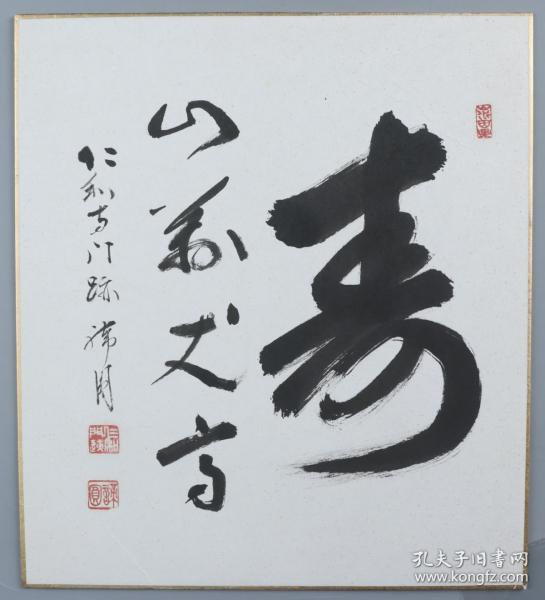 寿
山萬丈高
仁和寺門跡
孔夫子旧书网
www.kongfz.com